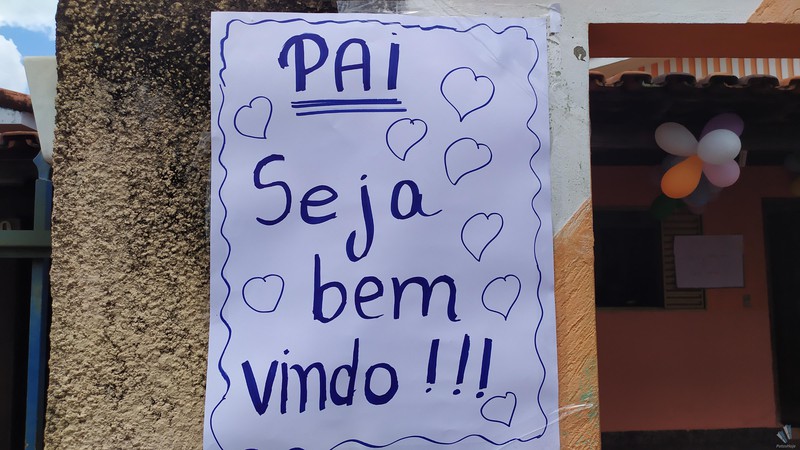 PAI
Seja
bem
vindo !!!